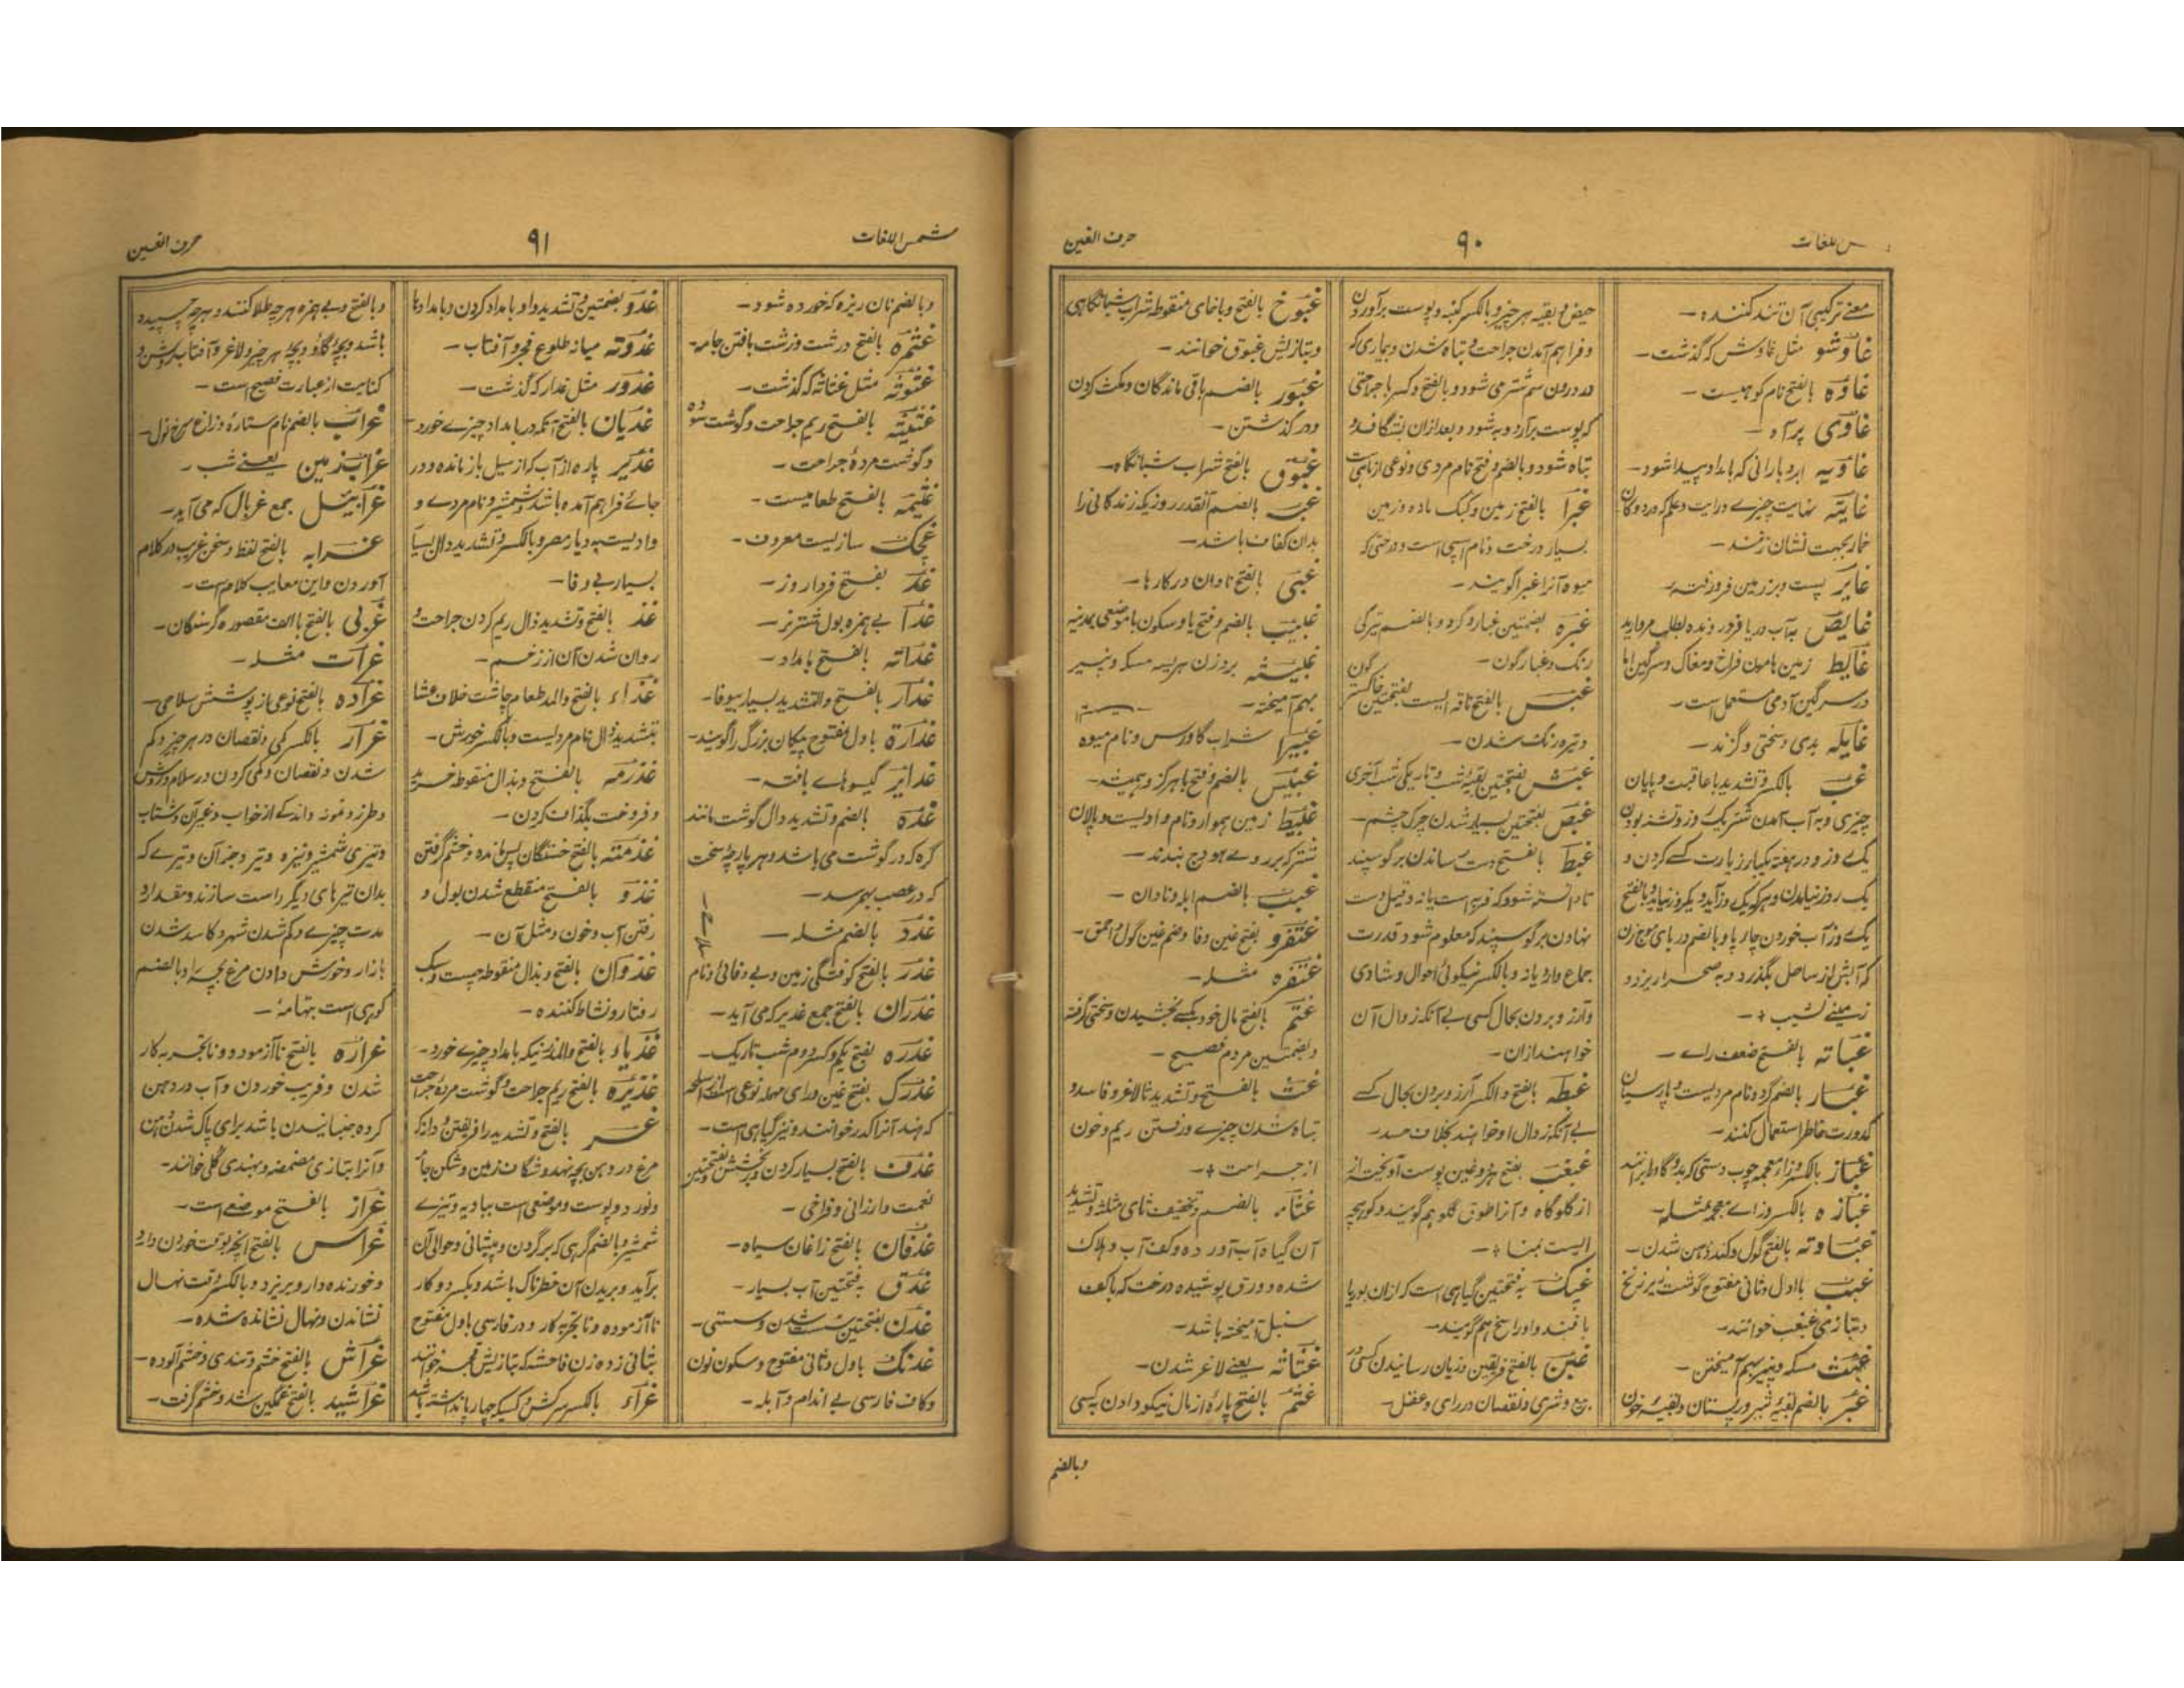 شمس اللغات
۹۰
حرف الغین
معنے ترکیبی آن تند کننده —
غاوشو مثل غاوش که گذشت —
غاوه بالفتح نام کوهیست —
غاوی پر آه —
غاویه ابر و بارانی که بامداد پیدا شود —
غایته نهایت چیزے و رایت و علم که در دوکان
خمار بجهت نشان زنند —
غایر پست و بر زمین فرو رفته —
غایص به آب دریا فرو رونده بطلب مروارید
غایط زمین هامون فراخ و مغاک و سرگین اما
در سرگین آدمی مستعمل است —
غایله بدی و سختی و گزند —
غب بالکسر و تشدید با عاقبت و پایان
چیزی و به آب آمدن شتر یک روز و تشنه بودن
یک روز و در هفته یکبار زیارت کسے کردن و
یک روز نیامدن و هر که یک روز آید و یکروز نیاید و بالفتح
یک روز آب خوردن چارپا و بالضم دریای موج زن
که آبش از ساحل بگذرد و به صحرا ریزد و
زمینے نشیب + —
غباته بالفتح ضعف راے —
غبار بالضم گرد و نام مردیست و پارسیان
کدورت خاطر استعمال کنند —
غباز بالکسر و زاء معجمه چوب دستی که بدو گاو رانند
غبازه بالکسر و زاے معجمه مثله —
غباوته بالفتح گول و کند ذهن شدن —
غبب با اول و ثانی مفتوح گوشت زیر زنخ
و بتازی غبغب خوانند —
غبث مسکه و پنیر بهم آمیختن —
غبر بالضم بقیهٔ شیر در پستان و بقیهٔ خون
حیض و بقیه هر چیز و بالکسر کینه و پوست برآوردن
و فراهم آمدن جراحت و تباه شدن و بیماری که
در درون سم شتر می شود و بالفتح و کسر با جراحتی
که پوست برآرد و به شود و بعد ازان بشگافد و
تباه شود و بالضم و فتح نام مردی و نوعی از ماهی
غبرا بالفتح زمین و کبک ماده و زمین
بسیار درخت و نام اسپی است و درختی که
میوه آنرا غبرا گویند —
غبره بضمتین غبار و گرد و بالضم تیرگی
رنگ و غبار گون —
غبس بالفتح ناقه ایست بفتحتین خاکستر گون
و تیره رنگ شدن —
غبش بفتحتین بقیهٔ شب و تاریکی شب آخری
غبص بفتحتین بسیار شدن چرک چشم —
غبط بالفتح دست رساندن بر گوسپند
تا دانسته شود که فربه است یا نه و قیل دست
نهادن بر گوسپند که معلوم شود قدرت
جماع دارد یا نه و بالکسر نیکوئی احوال و شادی
و آرزو بردن بحال کسی بے آنکه زوال آن
خواهند ازان —
غبطه بالفتح و الکسر آرزو بردن بحال کسے
بے آنکه زوال او خواهند بخلاف حسد —
غبغب بفتح هر دو غین پوست آویخته از
از گلوگاه و آنرا طوق گلو هم گویند و کوریچه
ایست بمنا + —
غبک بفتحتین گیاهی است که ازان بوریا
بافند و او را بخ هم گویند —
غبن بالفتح فریفتن و زیان رسانیدن کسی در
بیع و شری و نقصان در رای و عقل —
غبوخ بالفتح و با خای منقوطه شراب شبانگاهی
و بتازیش غبوق خوانند —
غبور بالضم باقی ماندگان و مکث کردن
و در گذشتن —
غبوق بالفتح شراب شبانگاه —
غب بالضم آنقدر روزی که زندگانی را
بدان کفاف باشد —
غبی بالفتح نادان در کارها —
غبیب بالضم و فتح با و سکون یا موضعی بمدینه
غبیسثه بروزن هریسه مسکه و پنیر
بهم آمیخته —
غبیرا شراب گاورس و نام میوه
غبیس بالضم و فتح با هرگز و همیشه —
غبیط زمین هموار و نام وادیست و پالان
شتر که بر روے هودج بندند —
غبب بالضم ابله و نادان —
غتفرو بفتح غین و فا و ضم غین گول و احمق —
غتفره مثله —
غتم بالفتح مال خود بکسے بخشیدن و سختی گرفته
و بضمتین مردم فصیح —
غث بالفتح و تشدید ثا لاغر و فاسد و
تباه شدن چیزے و رفتن ریم و خون
از جراحت + —
غثاء بالضم و تخفیف ثای مثلثه و تشدید
آن گیاه آب آورده و کف آب و هلاک
شده و ورق پوشیده درخت که با کف
سنبل آمیخته باشد —
غثاثه یعنے لاغر شدن —
غثم بالفتح پارهٔ از مال نیکو دادن بکسی
وبالضم
شمس اللغات
۹۱
حرف الغین
و بالضم نان ریزه که خورده شود —
غثمره بالفتح درشت و زشت بافتن جامه —
غثوثه مثل غثاثه که گذشت —
غثیثه بالفتح ریم جراحت و گوشت سوده
و گوشت مردهٔ جراحت —
غثیمه بالفتح طعامیست —
غجک سازیست معروف —
غد بفتح فردا روز —
غدا بے همزه بول شتر نر —
غداته بالفتح بامداد —
غدار بالفتح و التشدید بسیار بیوفا —
غداره باول مفتوح پیکان بزرگ را گویند —
غدایر گیسوهاے بافته —
غده بالضم و تشدید دال گوشت مانند
گره که در گوشت می باشد و هر پارچهٔ سخت
که در عصب بهم رسد —
غدد بالضم مثله —
غدر بالفتح کوفتگی زمین و بے وفائی و نام
غدران بالفتح جمع غدیر که می آید —
غدره بفتح یکم و کسر دوم شب تاریک —
غدرک بفتح غین و رای مهمله نوعی است از اسلحه
که هند آنرا کدر خوانند و نیز گیاهی است —
غدف بالفتح بسیار کردن و بخشش و بفتحتین
نعمت و ارزانی و فراخی —
غدفان بالفتح زاغان سیاه —
غدق بفتحتین آب بسیار —
غدن بفتحتین سست شدن و سستی —
غدنگ باول و ثانی مفتوح و سکون نون
و کاف فارسی بے اندام و آبله —
غدو بضمتین و تشدید واو بامداد کردن و بامدادها
غدوته میانه طلوع فجر و آفتاب —
غدور مثل غدار که گذشت —
غدیان بالفتح آنکه در بامداد چیزے خورد —
غدیر پاره از آب که از سیل باز مانده و در
جائے فراهم آمده باشد و شمشیر و نام مردے و
وادیست به دیار مصر و بالکسر و تشدید دال بسیار
بسیار بے وفا —
غذ بالفتح و تشدید ذال ریم کردن جراحت و
روان شدن آن از زخم —
غذاء بالفتح والمد طعام چاشت خلاف عشا
بتشدید ذال نام مردیست و بالکسر خورش —
غذرمه بالفتح و بذال منقوطه خرید
و فروخت بگذاف کردن —
غذمته بالفتح خستگان پس مانده و خشم گرفتن
غذو بالفتح منقطع شدن بول و
رفتن آب و خون و مثل آن —
غذوان بالفتح و بذال منقوطه چست و سبک
رفتار و نشاط کننده —
غذیاء بالفتح و المد زنیکه بامداد چیزے خورد —
غذیره بالفتح ریم جراحت و گوشت مردهٔ جراحت
غر بالفتح و تشدید را فریفتن و دانه که
مرغ در دهن بچه نهد و شگاف زمین و شکن جامه
و نورد و پوست و موضعی است ببادیه و تیزے
شمشیر و بالضم گرهی که بر گردن و پیشانی و حوالی آن
برآید و بریدن آن خطرناک باشد و بکسر دو کار
نا آزموده و نا تجربه کار و در فارسی باول مفتوح
بثانی زده زن فاحشه که بتازیش قحبه خوانند
غراء بالکسر سرکش و کسیکه چهار پا نداشته باشد
و بالفتح و بے همزه هر چه طلا کنند و هر چه چسپیده
باشد و بچهٔ گاو و بچهٔ هر چیز و لاغر و آفتاب روشن و
کنایت از عبارت فصیح است —
غراب بالضم نام ستاره و زاغ سرخ نول —
غراب زمین یعنے شب —
غرابیل جمع غربال که می آید —
غرابه بالفتح لفظ و سخن غریب در کلام
آوردن و این معایب کلام است —
غربی بالفتح با الف مقصوره گرسنگان —
غرات مثله —
غراده بالفتح نوعی از پوشش سلامی —
غرار بالکسر کمی و نقصان در هر چیز و کم
شدن و نقصان و کمی کردن در سلام و روش
و طرز و نمونه و اندکے از خواب و غیر آن و شتاب
و تیزی شمشیر و نیزه و تیر و جز آن و تیرے که
بدان تیرهای دیگر راست سازند و مقدار و
مدت چیزے و کم شدن شهر و کاسد شدن
بازار و خورش دادن مرغ بچه را و بالضم
کوهی است بتهامهٔ —
غراره بالفتح نا آزموده و نا تجربه کار
شدن و فریب خوردن و آب در دهن
کرده جنبانیدن باشد برای پاک شدن دهن
و آنرا بتازی مضمضه و بهندی کلی خوانند —
غراز بالفتح موضعے است —
غراس بالفتح آنچه بوقت خوردن دارو
و خورنده دارو بریزد و بالکسر وقت نهال
نشاندن و نهال نشانده شده —
غراش بالفتح خشم و تندی و خشم آلوده —
غراشید بالفتح غمگین شد و خشم گرفت —